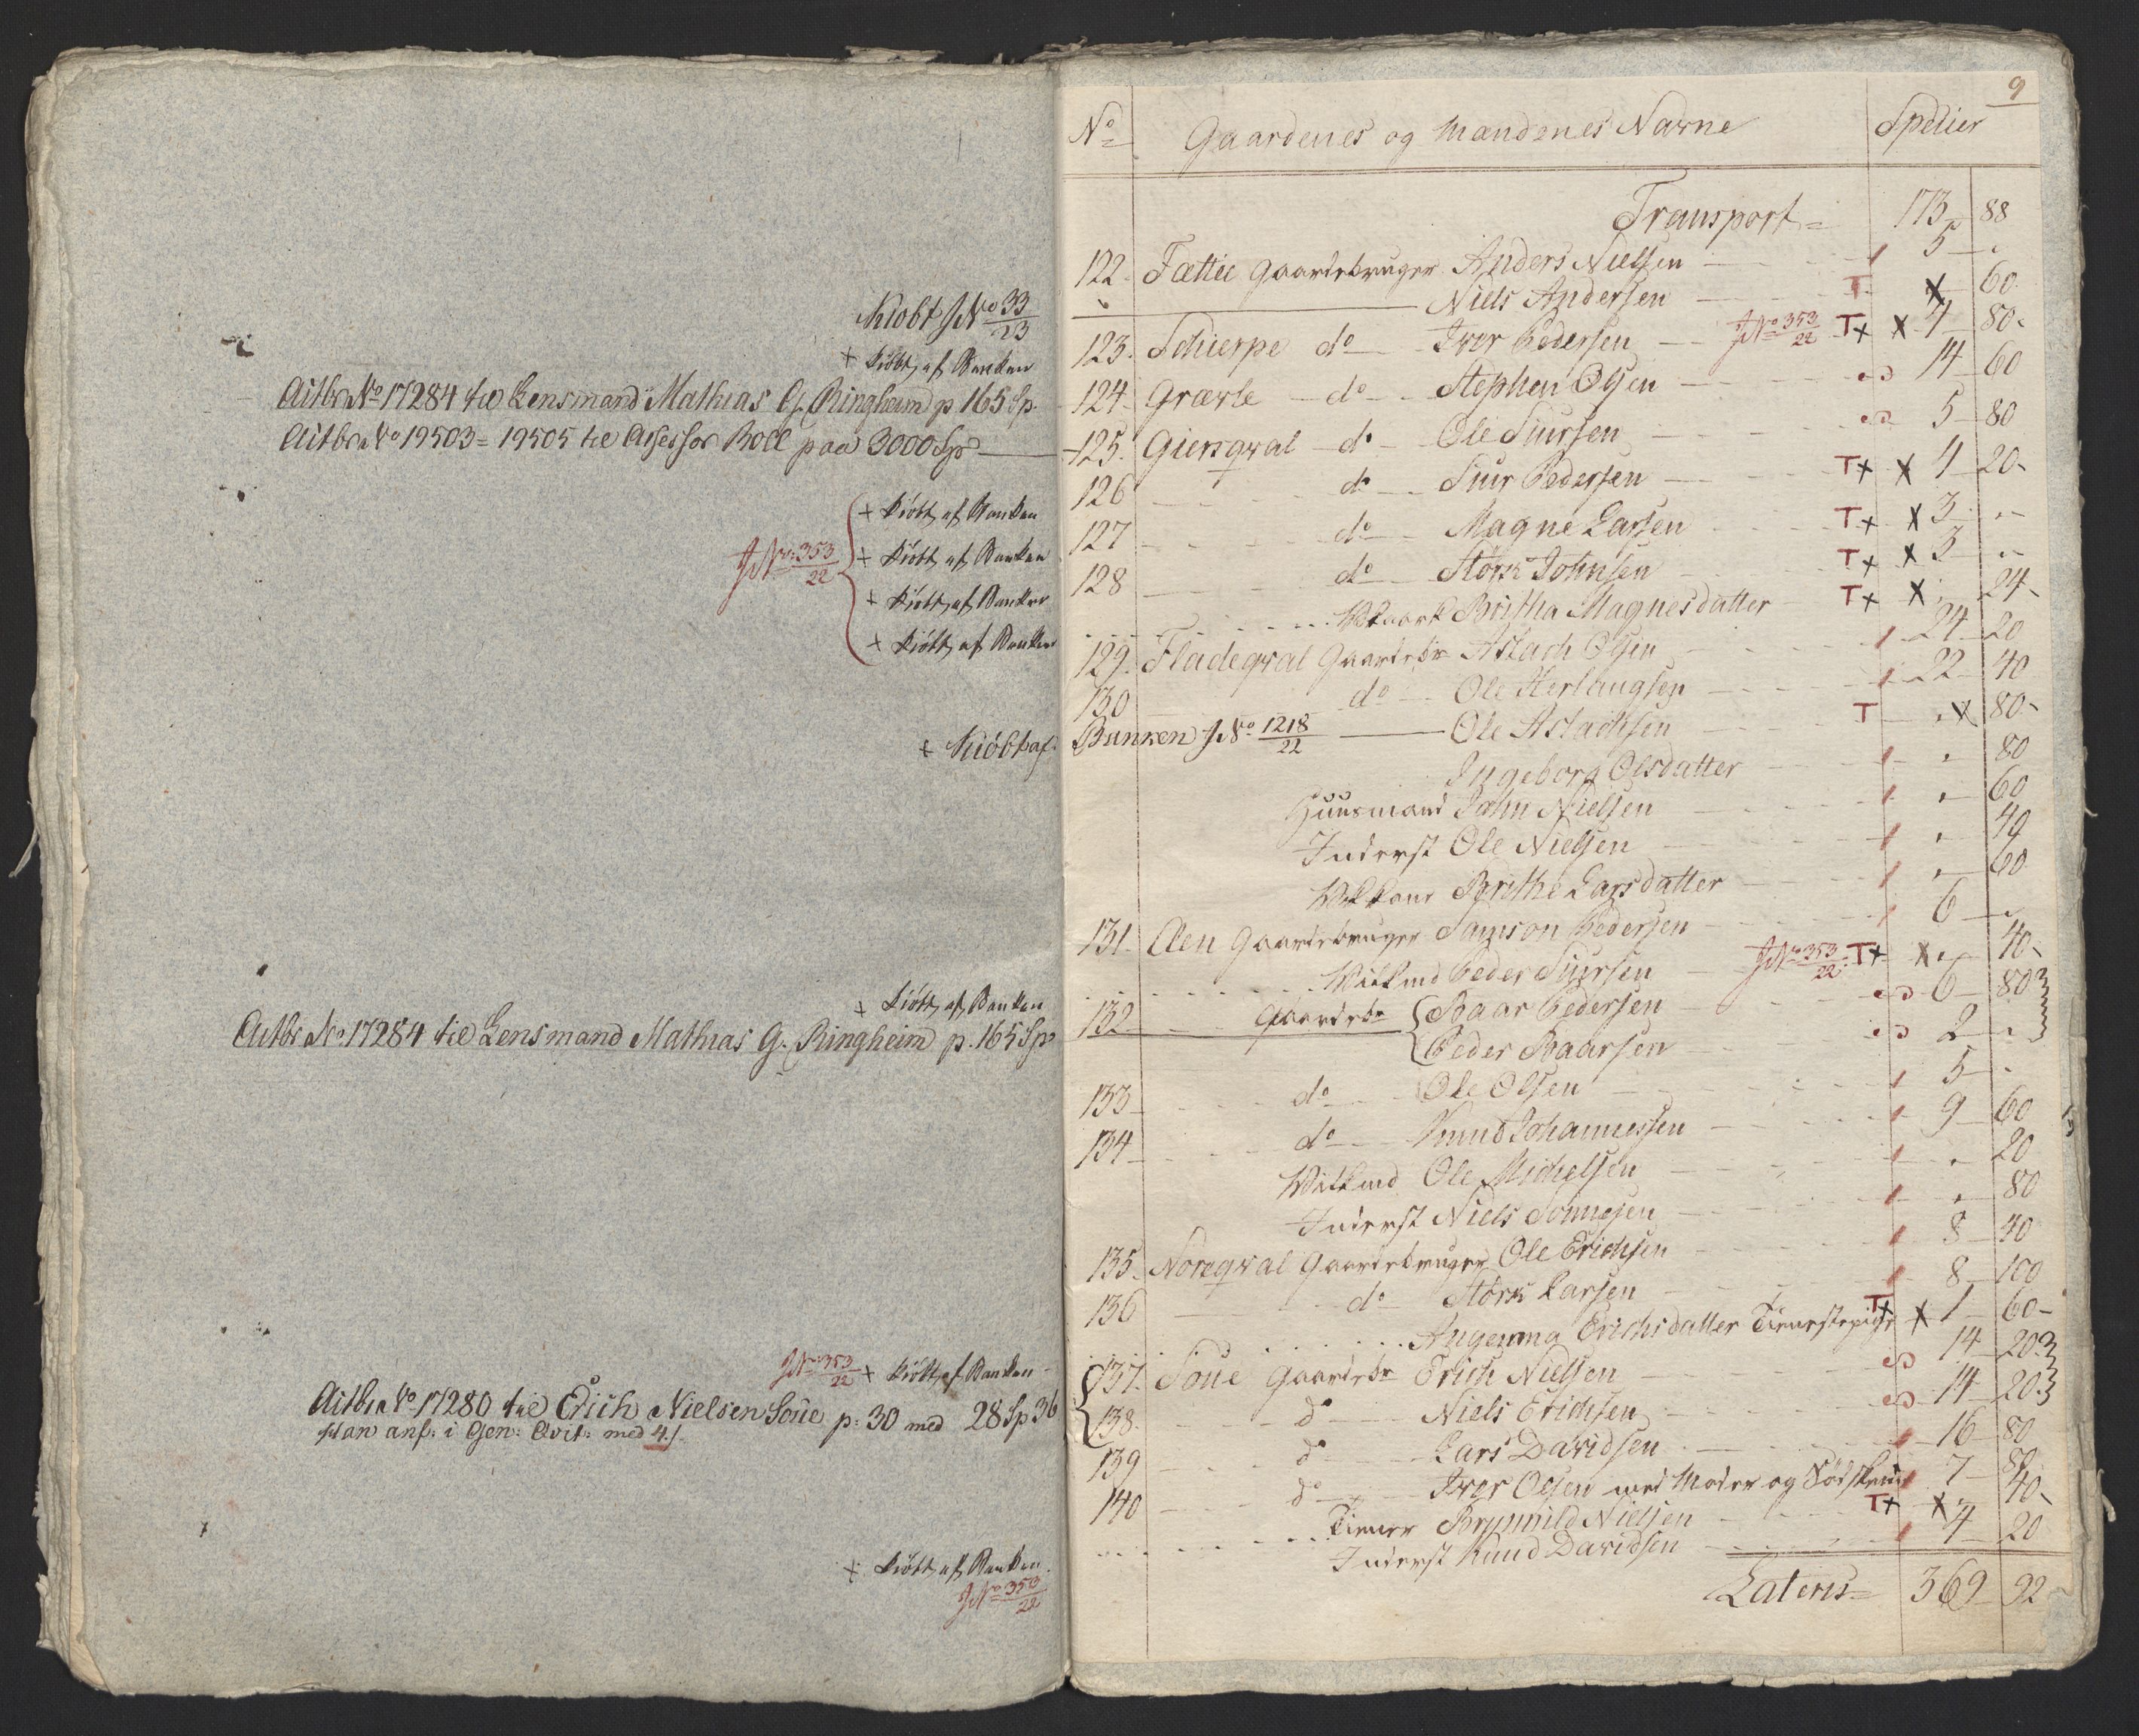 Kiøbt JNo 33/23
+ Kiøbt af Banken
Actbr No 17284 til Lensmand Mathias G. Ringheim p 165 Sp.
Actbr No 19503 = 19505 til Assessor Boll paa 3000 Sp
+ Kiøbt af Banken
JNo: 353/22
+ Kiøbt af Banken
+ Kiøbt af Banken
+ Kiøbt af Banken
+ Kiøbt af
+ Kiøbt af Banken
Actbr No 17284 til Lensmand Mathias G. Ringheim p. 165 Sp
JNo 353/22 + Kiøbt af Banken
Actbr No 17280 til Erich Nielsen Soue p: 30 med 28 Sp 36
anf: i Gen: Qvit: med 4 /.
+ Kiøbt af Banken
JNo 353/22
9
No Gaardenes og Mandenes Navne Spelier
Transport = 173 88
122. Fættie Gaardebruger Anders Nielsen 5 "
Niels Andersen T X 60
123. Schierpe do Iver Pedersen JNo 353/22 T+ X 4 80
124. Græwle do Stephen Olsen 14 60
125. Giersqval do Ole Siursen 5 80
126 do Siur Pedersen T+ X 4 20
127 do Magne Larsen T+ X 3 "
128 do Størk Johnsen T+ X 3 "
Britha Magnesdatter T+ X " 24
129. Fladeqval Gaardebr Aslach Olsen 24 20
130 do Ole Herlaugsen 22 40
Banken JNo 1218/22 Ole Aslachsen T X 80
Ingeborg Olsdatter " 80
Huusmand John Nielsen " 60
Inderst Ole Nielsen " 40
Brithe Larsdatter " 60
131. Aen Gaardebruger Samson Pedersen 6 "
Peder Siursen JNo 353/22 T+ X " 40
132 Gaardebr Baar Pedersen 6 80
Peder Baarsen 2 "
133 do Ole Olsen 5 "
134 do Knud Johannessen 9 60
Ole Michelsen " 20
Inderst Niels Sonnesen " 80
135. Noreqval Gaardebruger Ole Erichsen 8 40
136 do Størk Larsen 8 100
Angemna Erichsdatter Tienestepige T+ X 1 60
137. Soue Gaardebr Erich Nielsen 14 20
138. do Niels Erichsen 14 20
139 do Lars Davidsen 16 80
140 do Iver Olsen med Moder og Sødskend 7 80
Tiener Brynnild Nielsen T+ X " 40
Inderst Knud Davidsen 4 20
Lateris = 369 92